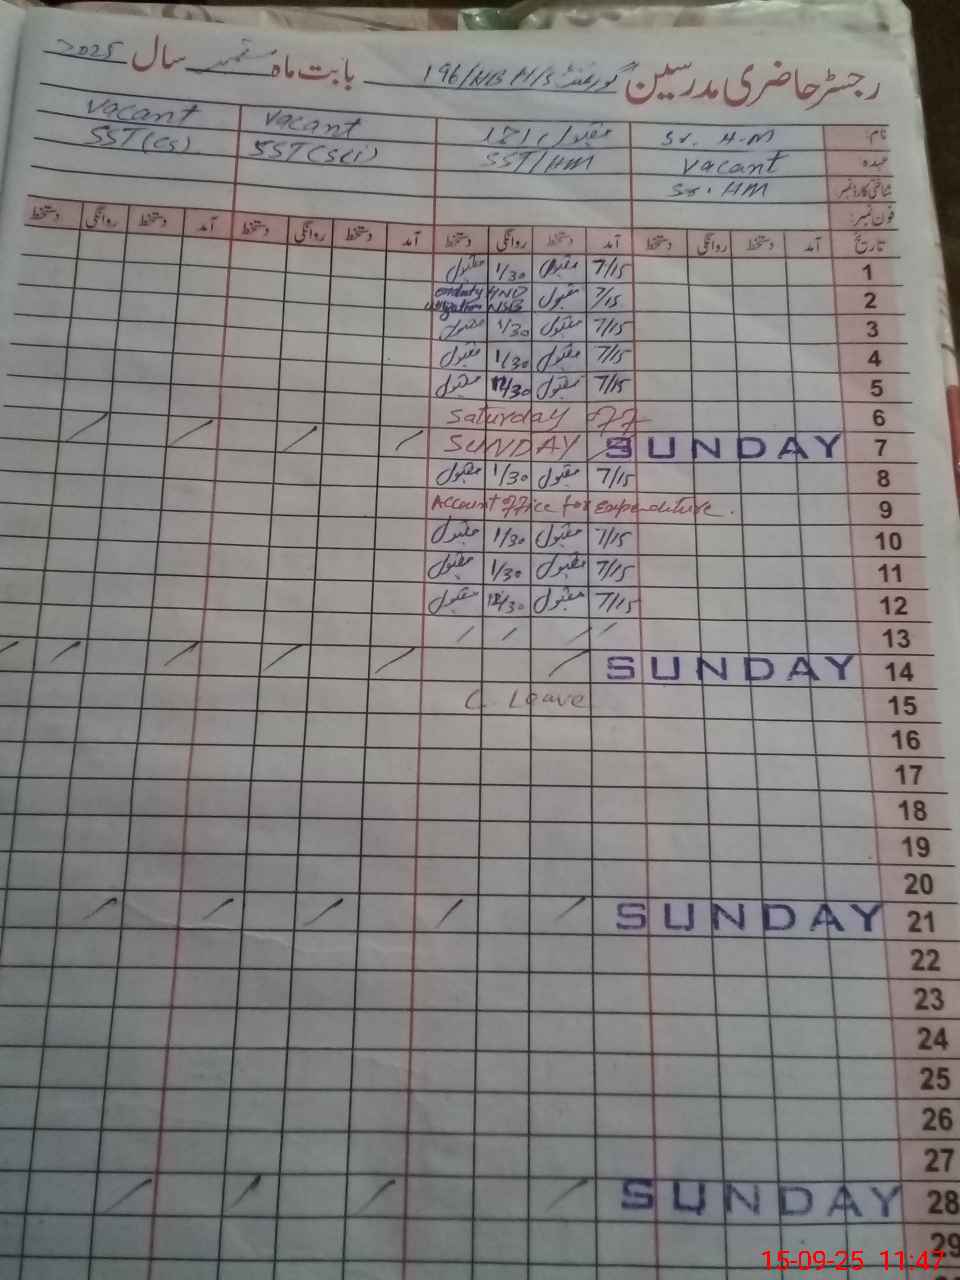 رجسٹر حاضری مدرسین گورنمنٹ 196/NB H/S بابت ماہ ستمبر سال 2025
نام: Sr. H.M مقبول احمد Vacant Vacant
عہدہ Vacant SST/HM SST(Sci) SST(CS)
شناختی کارڈ نمبر Sr. HM
فون نمبر:
تاریخ آمد دستخط روانگی دستخط آمد دستخط روانگی دستخط آمد دستخط روانگی دستخط آمد دستخط روانگی دستخط
1 7/15 مقبول 1/30 مقبول
2 7/15 مقبول
3 7/15 مقبول 1/30 مقبول
4 7/15 مقبول 1/30 مقبول
5 7/15 مقبول 12/30 مقبول
6 Saturday
7 SUNDAY SUNDAY
8 7/15 مقبول 1/30 مقبول
9 Account office for expenditure.
10 7/15 مقبول 1/30 مقبول
11 7/15 مقبول 1/30 مقبول
12 7/15 مقبول 12/30 مقبول
13
14 SUNDAY
15 C. Leave
16
17
18
19
20
21 SUNDAY
22
23
24
25
26
27
28 SUNDAY
29
15-09-25 11:47